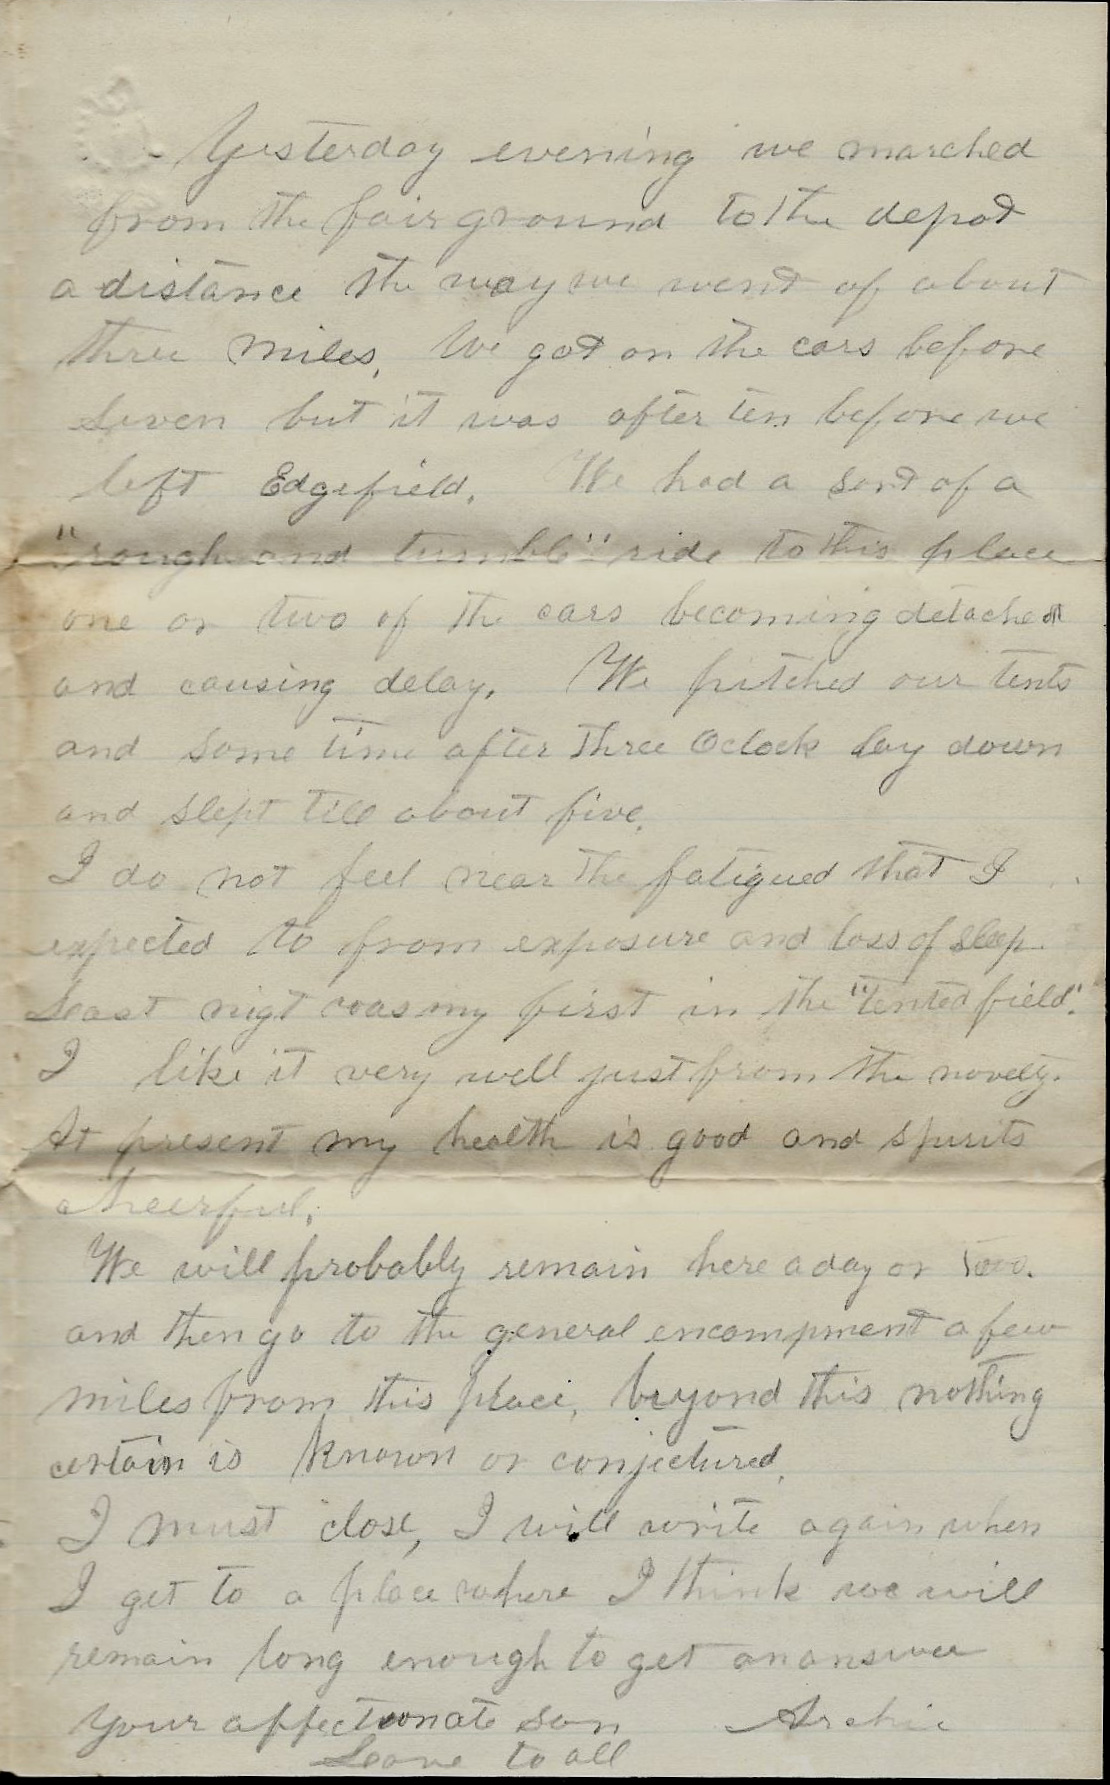 Yesterday evening we marched
from the fair ground to the depot
a distance the way we went of about
three miles, We got on the cars before
Seven but it was after ten before we
left Edgefield. We had a sort of a
"rough and tumble" ride to this place
one or two of the cars becoming detached
and causing delay. We pitched our tents
and some time after three Oclock lay down
and slept till about five.
I do not feel near the fatigued that I
expected to from exposure and loss of sleep.
Last nigt was my first in the "tented field".
I like it very well just from the novelty.
At present my health is good and spirits
cheerful.
We will probably remain here a day or two.
and then go to the general encampment a few
miles from this place, beyond this nothing
certain is known or conjectured.
I must close, I will write again when
I get to a place where I think we will
remain long enough to get an answer
Your affectionate son Archie
Love to all